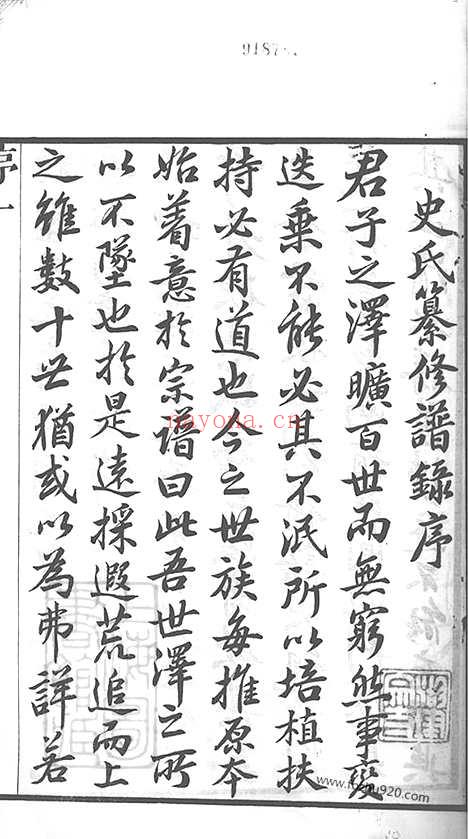 9187
史氏纂修譜錄序
君子之澤曠百世而無窮然事變
迭乗不能必其不泯所以培植扶
持必有道也今之世族每推原本
始着意於宗譜曰此吾世澤之所
以不墜也於是遠採遐荒追而上
之雖數十世猶或以為弗詳若
序一
nayona.cn